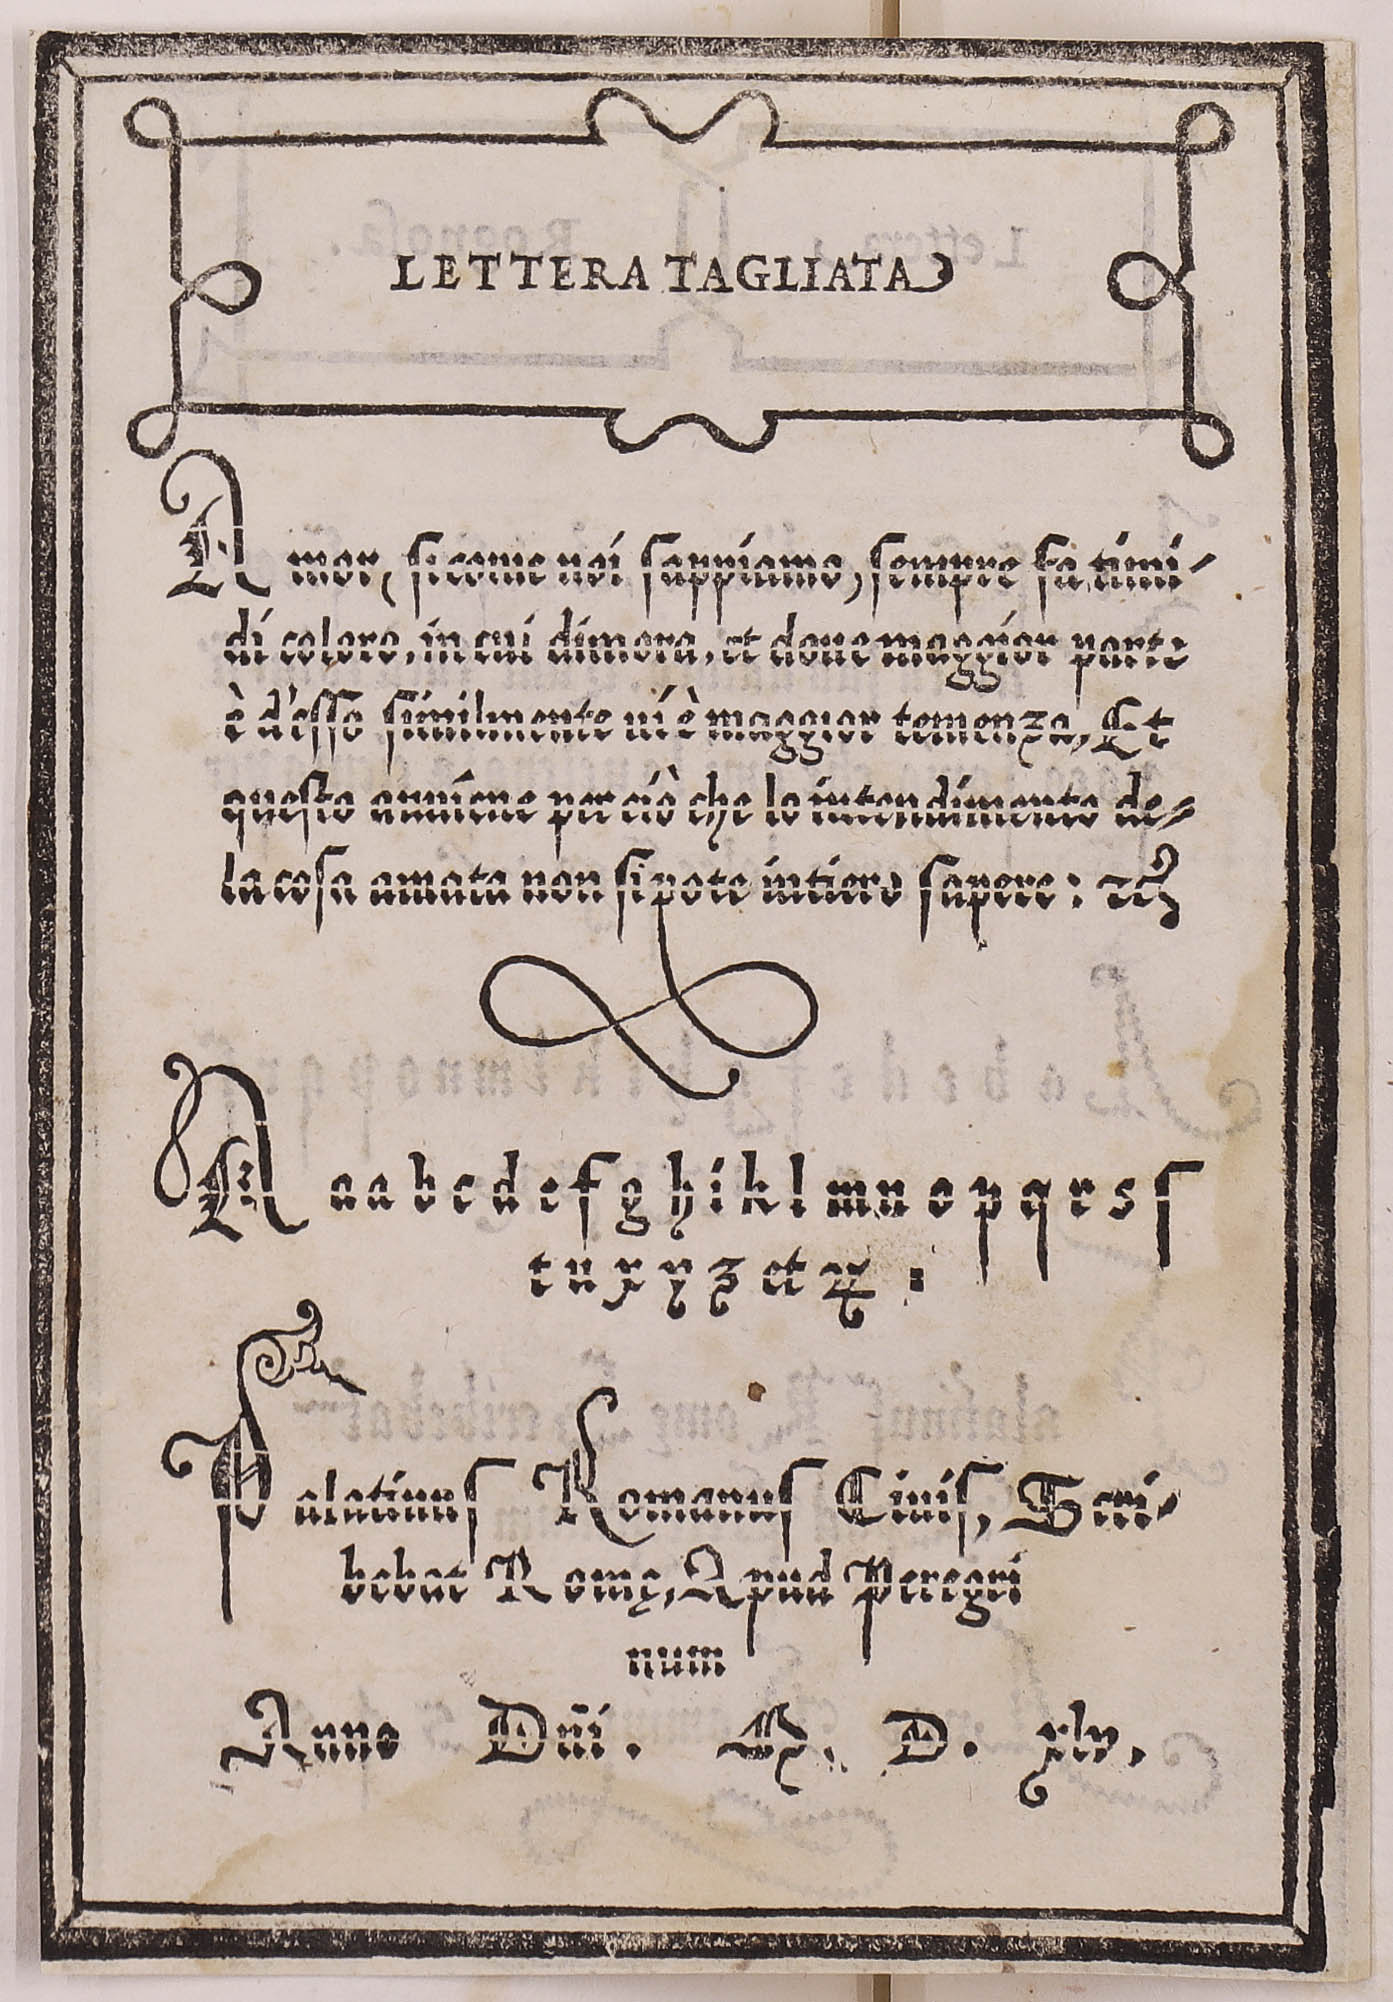 LETTERA TAGLIATA
Amor, sicome noi sappiamo, sempre fa timi-
di coloro, in cui dimora, et doue maggior parte
è d'esso similmente ui è maggior temenza, Et
questo auuiene per ciò che lo intendimento de-
la cosa amata non si pote intiero sapere: &c
A a a b c d e f g h i k l m n o p q r s s
t u x y z et &:
Palatinus Romanus Ciuis, Scri-
bebat Romę, Apud Peregri
num
Anno Dñi. M. D. xlv.